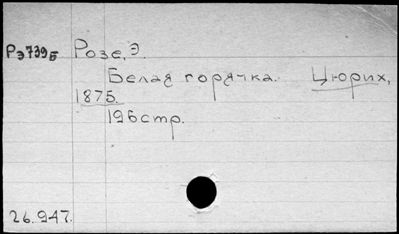 Рэ739Б Розе, Э.
Белая горячка. Цюрих,
1875.
196 стр.
26.947.